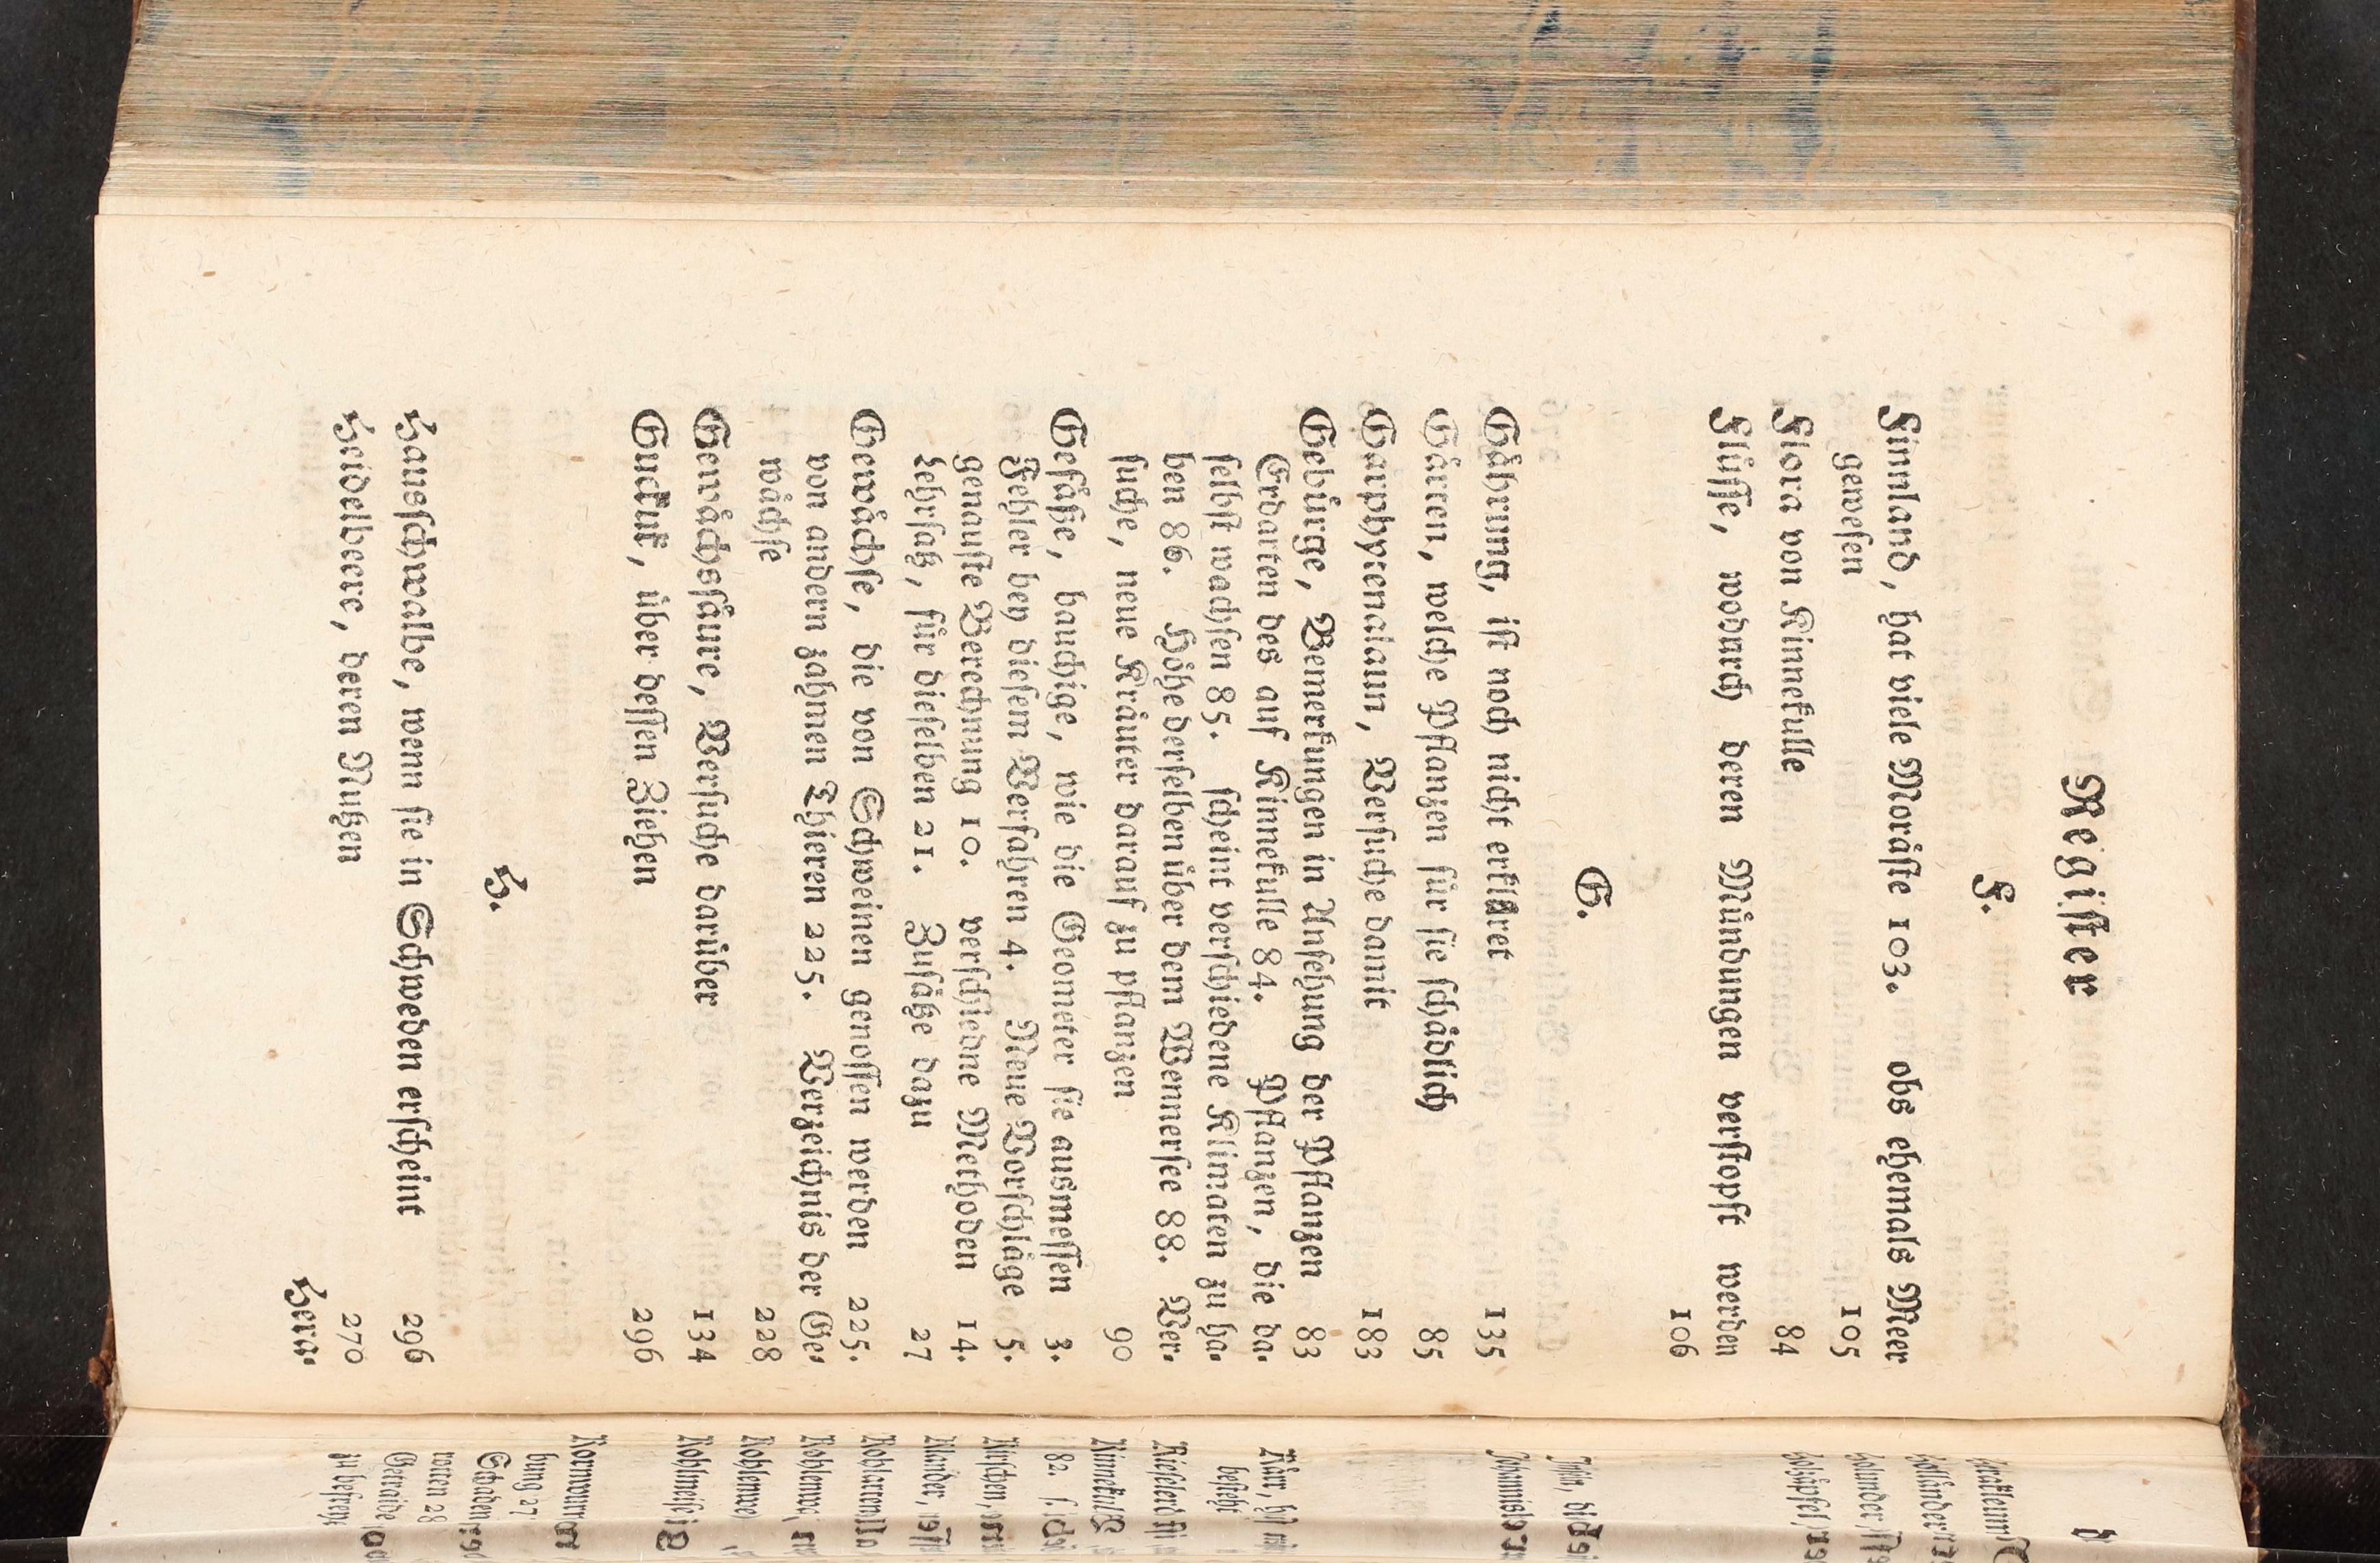 Regiſter
F.
Finnland, hat viele Moraͤſte 103. obs ehemals Meer
geweſen 105
Flora von Kinnekulle 84
Fluͤſſe, wodurch deren Muͤndungen verſtopft werden
106
G.
Gaͤhrung, iſt noch nicht erklaͤret 135
Gaͤrren, welche Pflanzen fuͤr ſie ſchaͤdlich 85
Garphyttenalaun, Verſuche damit 183
Gebuͤrge, Bemerkungen in Anſehung der Pflanzen 83
Erdarten des auf Kinnekulle 84. Pflanzen, die da-
ſelbſt wachſen 85. ſcheint verſchiedene Klimaten zu ha-
ben 86. Hoͤhe derſelben uͤber dem Wennerſee 88. Ver-
ſuche, neue Kraͤuter darauf zu pflanzen 90
Gefaͤße, bauchige, wie die Geometer ſie ausmeſſen 3.
Fehler bey dieſem Verfahren 4. Neue Vorſchlaͤge 5.
genauſte Berechnung 10. verſchiedne Methoden 14.
Lehrſatz, fuͤr dieſelben 21. Zuſaͤtze dazu 27
Gewaͤchſe, die von Schweinen genoſſen werden 225.
von andern zahmen Thieren 225. Verzeichnis der Ge-
waͤchſe 228
Gewaͤchsſaͤure, Verſuche daruͤber 134
Guckuk, uͤber deſſen Ziehen 296
H.
Hausſchwalbe, wenn ſie in Schweden erſcheint 296
Heidelbeere, deren Nutzen 270
Hera-
Hollaͤnder
Holunder
Holzaͤpfel
Johannis
Kaͤr,
beſetzt
82.
Kirſchen,
Klander,
Kornwurm
bung 27
Schaden
rotten 28
Getraide
zu befreye